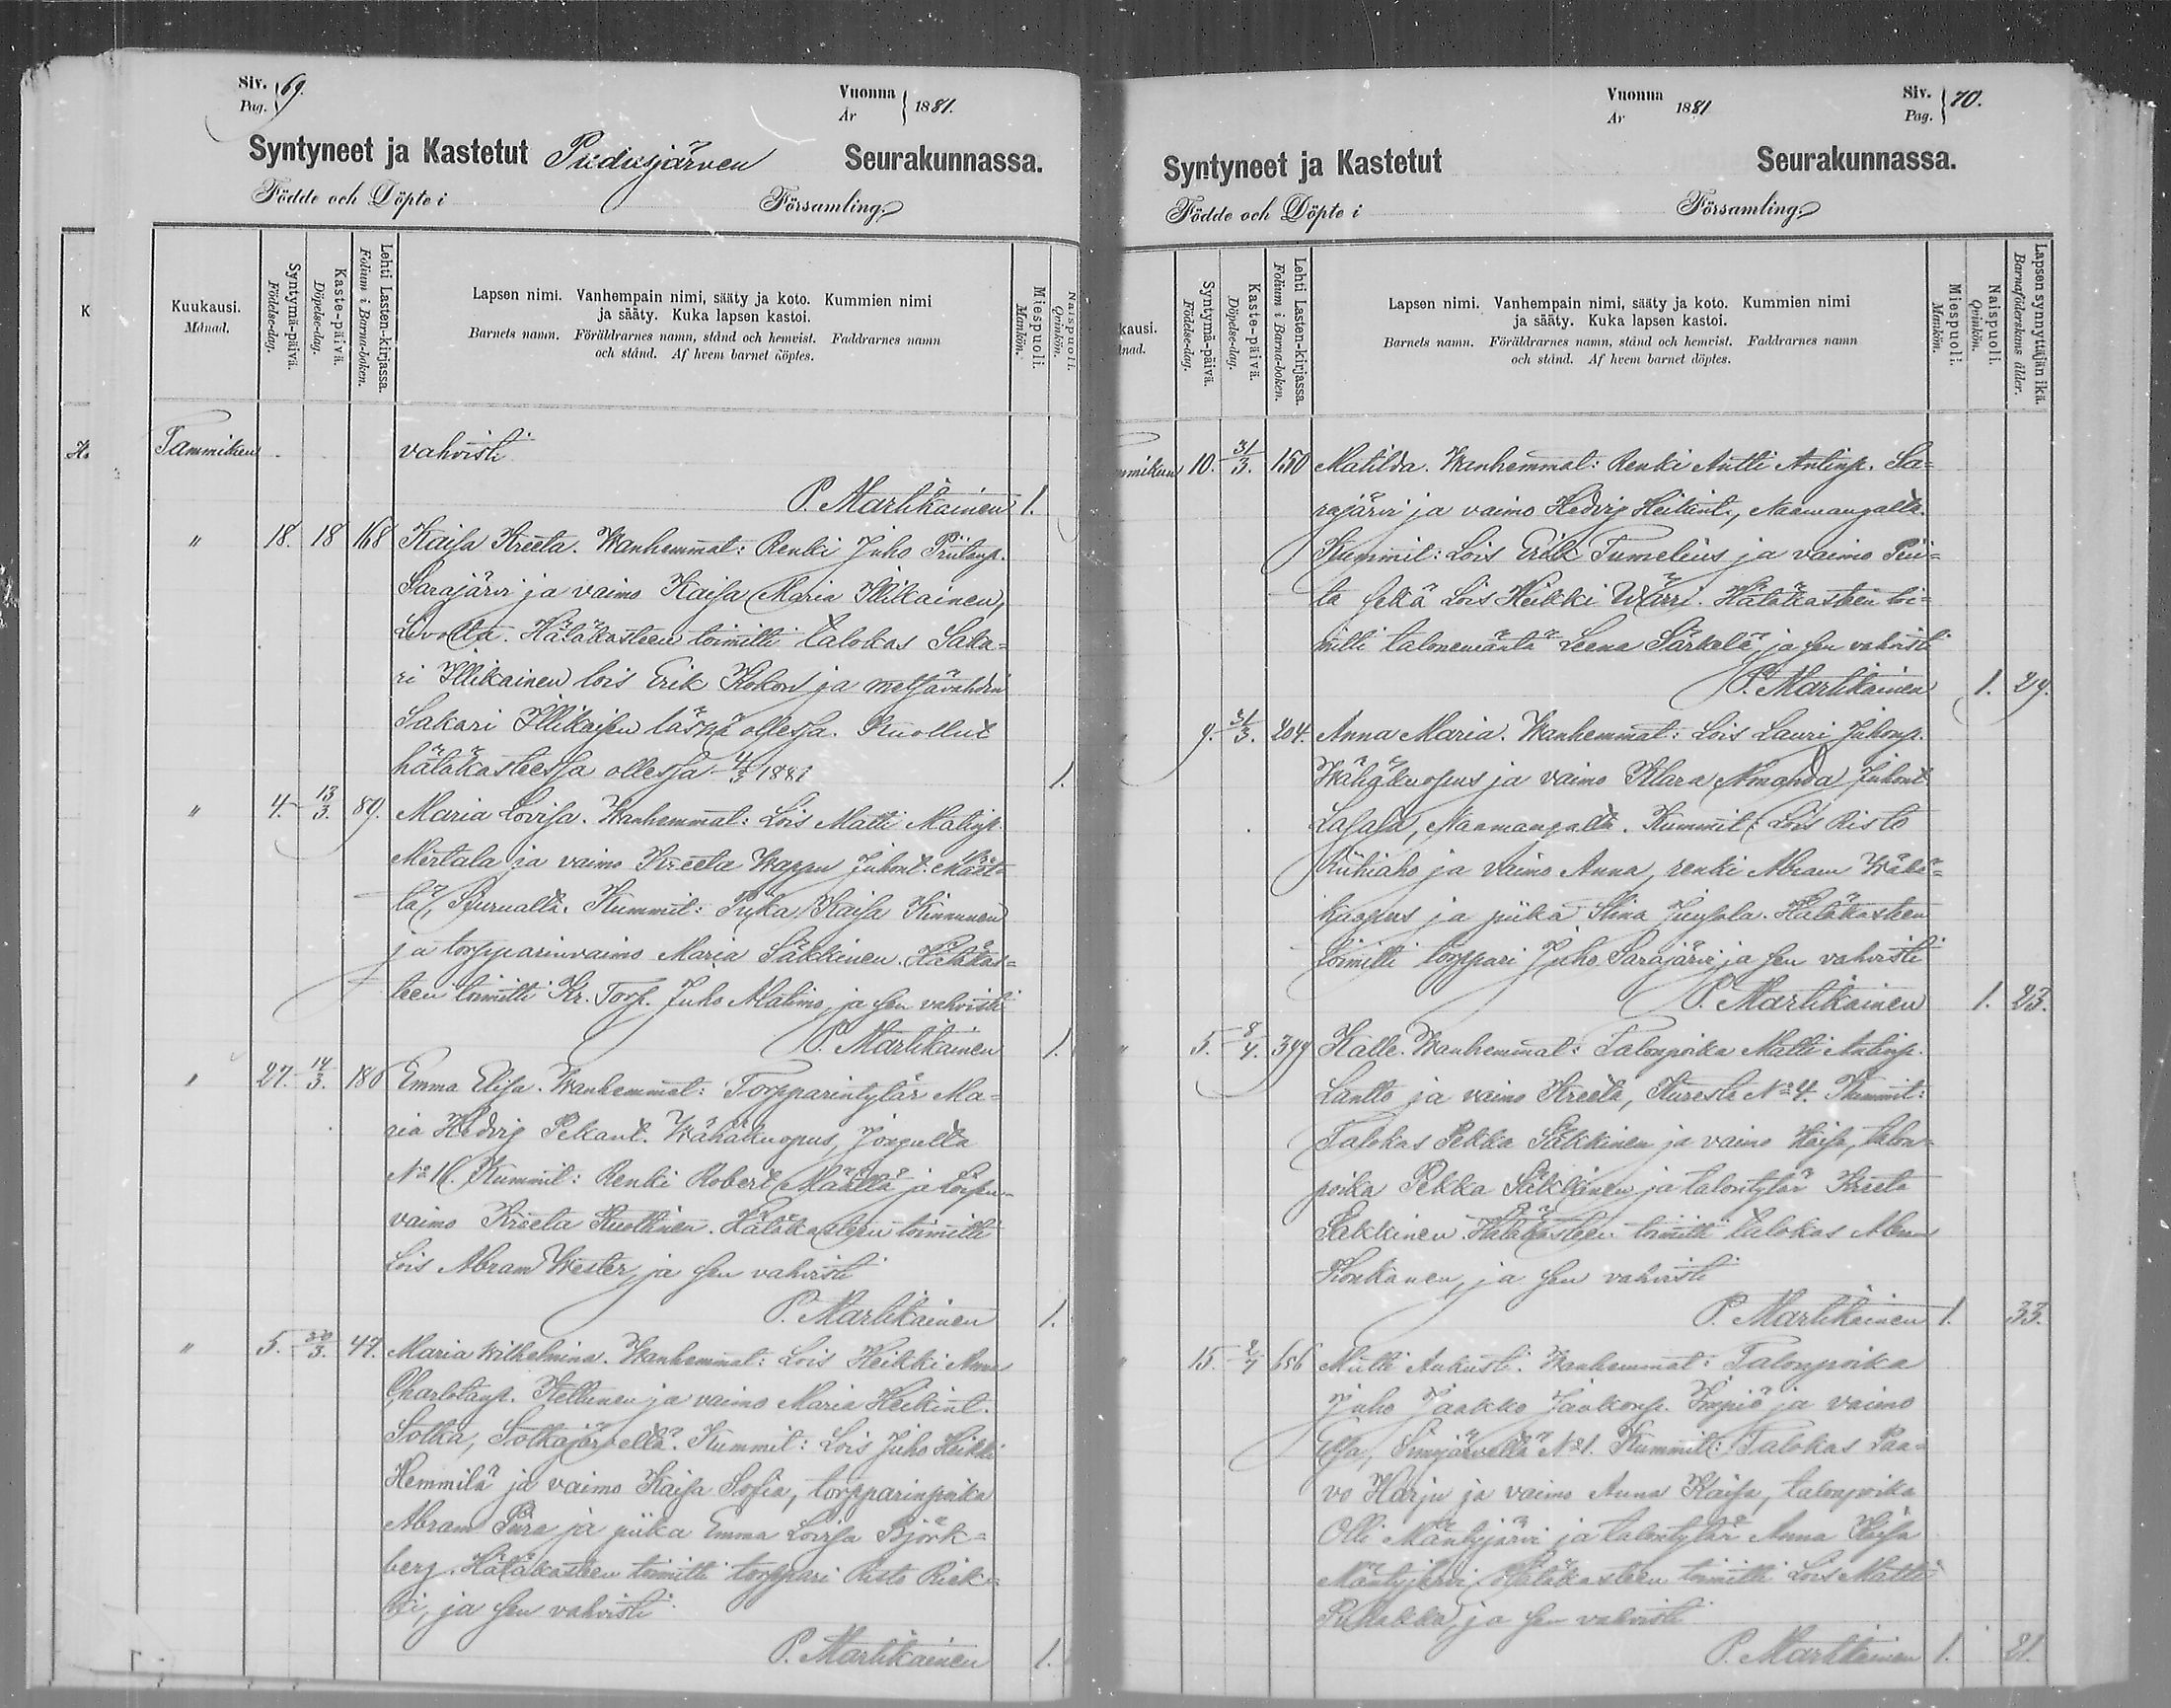 Siv. 69.
Pag.
Vuonna 1881.
År
Syntyneet ja Kastetut Pudasjärven Seurakunnassa.
Födde och Döpte i Församling.
Kuukausi.
Månad.
Syntymä-päivä.
Födelse-dag.
Kaste-päivä.
Döpelse-dag.
Lehti Lasten-kirjassa.
Folium i Barna-boken.
Lapsen nimi. Vanhempain nimi, sääty ja koto. Kummien nimi
ja sääty. Kuka lapsen kastoi.
Barnets namn. Föräldrarnes namn, stånd och hemvist. Faddrarnes namn
och stånd. Af hvem barnet döptes.
Miespuoli.
Mankön.
Naispuoli.
Qvinkön.
Tammikuu vahvisti
P. Martikainen 1.
" 18. 18 168 Kaisa Kreeta. Wanhemmat: Renki Juho
Sarajärvi ja vaimo Kaisa Maria Illikainen,
Livolta. Hätäkasteen toimitti talokas Saka-
ri Illikainen lois Erik Kokon ja metsävahdin
Sakari Illikaisen läsnä ollessa. Kuollut
hätäkasteessa ollessa 4/3 1881 1.
" 4. 13/3. 89. Maria Lovisa. Wanhemmat: Lois Matti Matinp.
Mertala ja vaimo Kreeta Wappu Juhont. Määt-
tä, Siurualta. Kummit: Piika Kaisa Kinnunen
ja torpparinvaimo Maria Säkkinen. Hätäkas-
teen toimitti Kr. Torp. Juho Alatimo, ja sen vahvisti
P. Martikainen 1.
" 27. 14/3. 186 Emma Elisa. Wanhemmat: Torpparintytär Ma-
ria Hedvig Pekant. Wähäkuopus, Jongulta
No 16. Kummit: Renki Robert Määttä ja Loisen-
vaimo Kreeta Kuottinen. Hätäkasteen toimitti
Lois Abram Wester, ja sen vahvisti
P. Martikainen 1.
" 5. 30/3. 47. Maria Wilhelmina. Wanhemmat: Lois Heikki Anna
Charlotanp. Kellunen ja vaimo Maria Heikint.
Sotka, Sotkajärvellä. Kummit: Lois Juho Heikki
Hemmilä ja vaimo Kaisa Sofia, torpparinpoika
Abram Piira ja piika Emma Lovisa Björk-
berg. Hätäkasteen toimitti torppari Risto Riek-
ki, ja sen vahvisti
P. Martikainen 1.
Vuonna 1881
År
Siv. 70.
Pag.
Syntyneet ja Kastetut Seurakunnassa.
Födde och Döpte i Församling.
kausi.
nad.
Syntymä-päivä.
Födelse-dag.
Kaste-päivä.
Döpelse-dag.
Lehti Lasten-kirjassa.
Folium i Barna-boken.
Lapsen nimi. Vanhempain nimi, sääty ja koto. Kummien nimi
ja sääty. Kuka lapsen kastoi.
Barnets namn. Föräldrarnes namn, stånd och hemvist. Faddrarnes namn
och stånd. Af hvem barnet döptes.
Miespuoli.
Mankön.
Naispuoli.
Qvinkön.
Lapsen synnyttäjän ikä.
Barnaföderskans ålder.
mmikuu 10. 31/3. 150 Matilda. Wanhemmat: Renki Antti Antinp. Sa-
rajärvi ja vaimo Hedvig Heikint., Naamangalta.
Kummit: Lois Erik Tumelius ja vaimo Prii-
ta sekä Lois Heikki Wärri. Hätäkasteen toi-
mitti talonemäntä Leena Särkelä, ja sen vahvisti
P. Martikainen 1. 29.
9. 31/3. 204. Anna Maria. Wanhemmat: Lois Lauri Juhonp.
Wähäkuopus ja vaimo Klara Amanda Juhont.
Lasala, Naamangalta. Kummit: Lois Risto
Riihiaho ja vaimo Anna, renki Abram Wähä-
kuopus ja piika Stina Juusola. Hätäkasteen
toimitti torppari Juho Sarajärvi ja sen vahvisti
P. Martikainen 1. 23.
" 5. 8/4. 399 Kalle. Wanhemmat: Talonpoika Matti Antinp.
Lantto ja vaimo Kreeta, No 4. Kummit:
Talokas Pekka Säkkinen ja vaimo Kaisa, talon-
poika Pekka Säkkinen ja talontytär Kreeta
Säkkinen. Hätäkasteen toimitti talokas Abram
Konkanen, ja sen vahvisti
P. Martikainen 1. 33.
" 15. 2/7 656 Matti Aukusti. Wanhemmat: Talonpoika
Juho Jaakko Jaakonp. Impiö ja vaimo
Elsa, Siniyjärvellä No 1. Kummit: Talokas Paa-
vo Harju ja vaimo Anna Kaisa, talonpoika
Olli Mäntyjärvi ja talontytär Anna Kaisa
Mäntyjärvi. Hätäkasteen toimitti Lois Matti
ja sen vahvisti
P. Martikainen 1. 21.